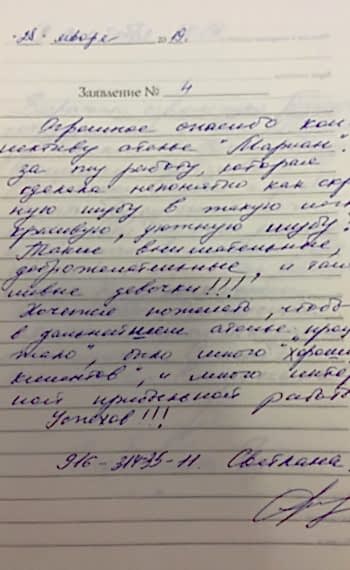 "28" января 2019.
Заявление № 4
Огромное спасибо кол
лективу ателье "Мариан".
за ту работу, которая
сделала непонятно как
ную шубу в такую
красивую, уютную шубу.
Такие внимательные,
доброжелательные, и
девочки!!!
Хочется пожелать, чтобы
в дальнейшем ателье
было много "хороших
клиентов", и много
ной прибыльной работы
Успехов!!!
Светлана